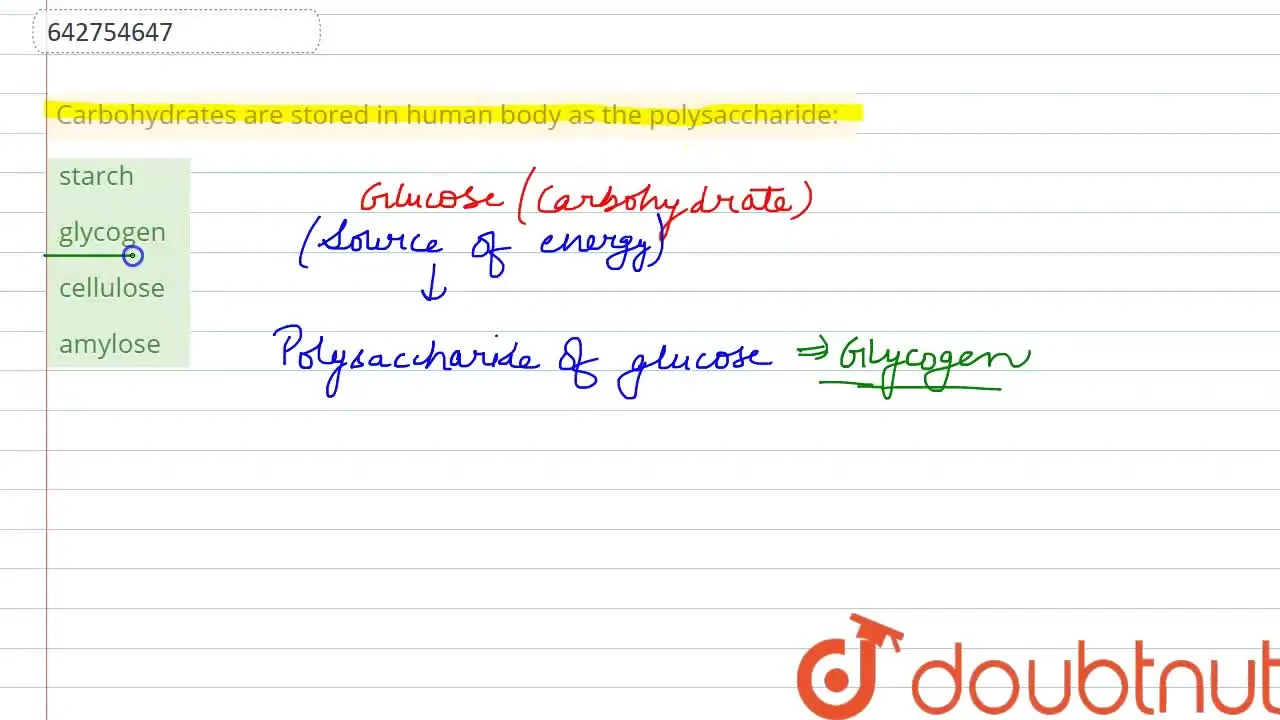 642754647
Carbohydrates are stored in human body as the polysaccharide:
starch
glycogen
cellulose
amylose
Glucose (Carbohydrate)
(Source of energy)
↓
Polysaccharide of glucose ⇒ Glycogen
doubtnut